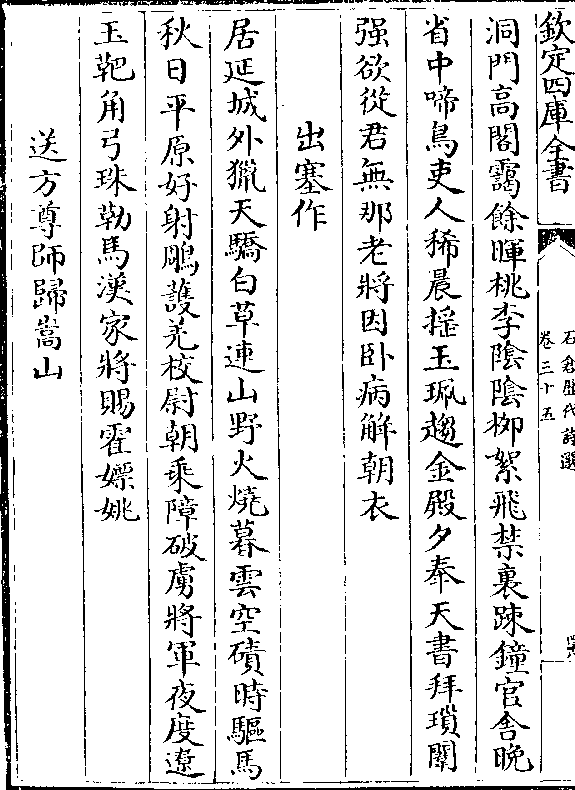 欽定四庫全書
石倉歷代詩選
卷三十五
洞門高閣靄餘暉桃李陰陰栁絮飛禁裏踈鐘官舍晩
省中啼鳥吏人稀晨揺玉珮趨金殿夕奉天書拜瑣闈
强欲從君無那老將因卧病解朝衣
出塞作
居延城外獵天驕白草連山野火燒暮雲空磧時驅馬
秋日平原好射鵰䕶羌校尉朝乘障破虜將軍夜度遼
玉靶角弓珠勒馬漢家將賜霍嫖姚
送方尊師歸嵩山